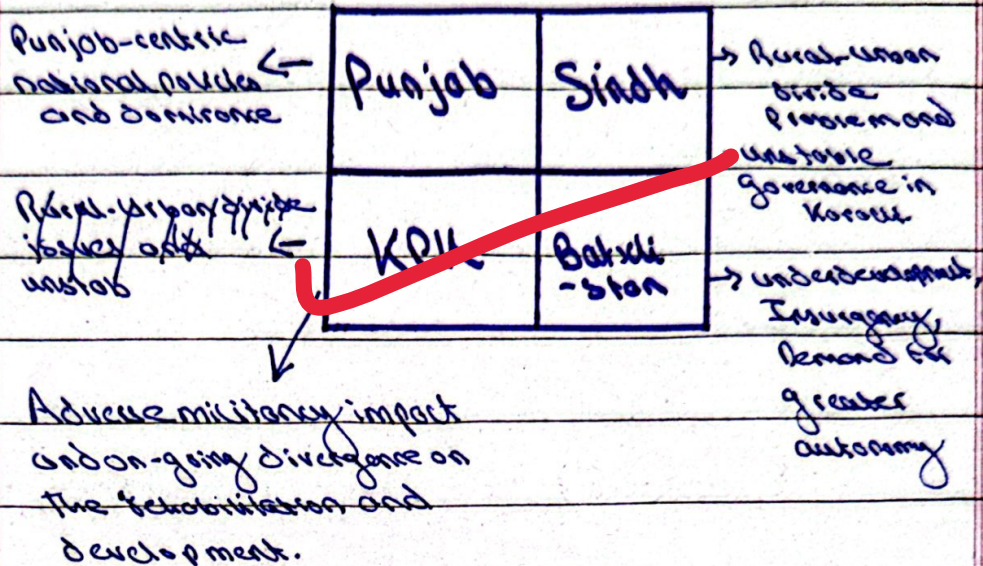 Punjab-centric
national policies
and dominance
Punjab
Sindh
Rural-urban
divide
Problem and
unstable
governance in
Karachi
Rural-urban divide
issues and
unstab
KPK
Balochi
-stan
underdevelopment,
Insurgency,
Demand for
greater
autonomy
Adverse militancy impact
and on-going divergence on
the rehabilitation and
development.